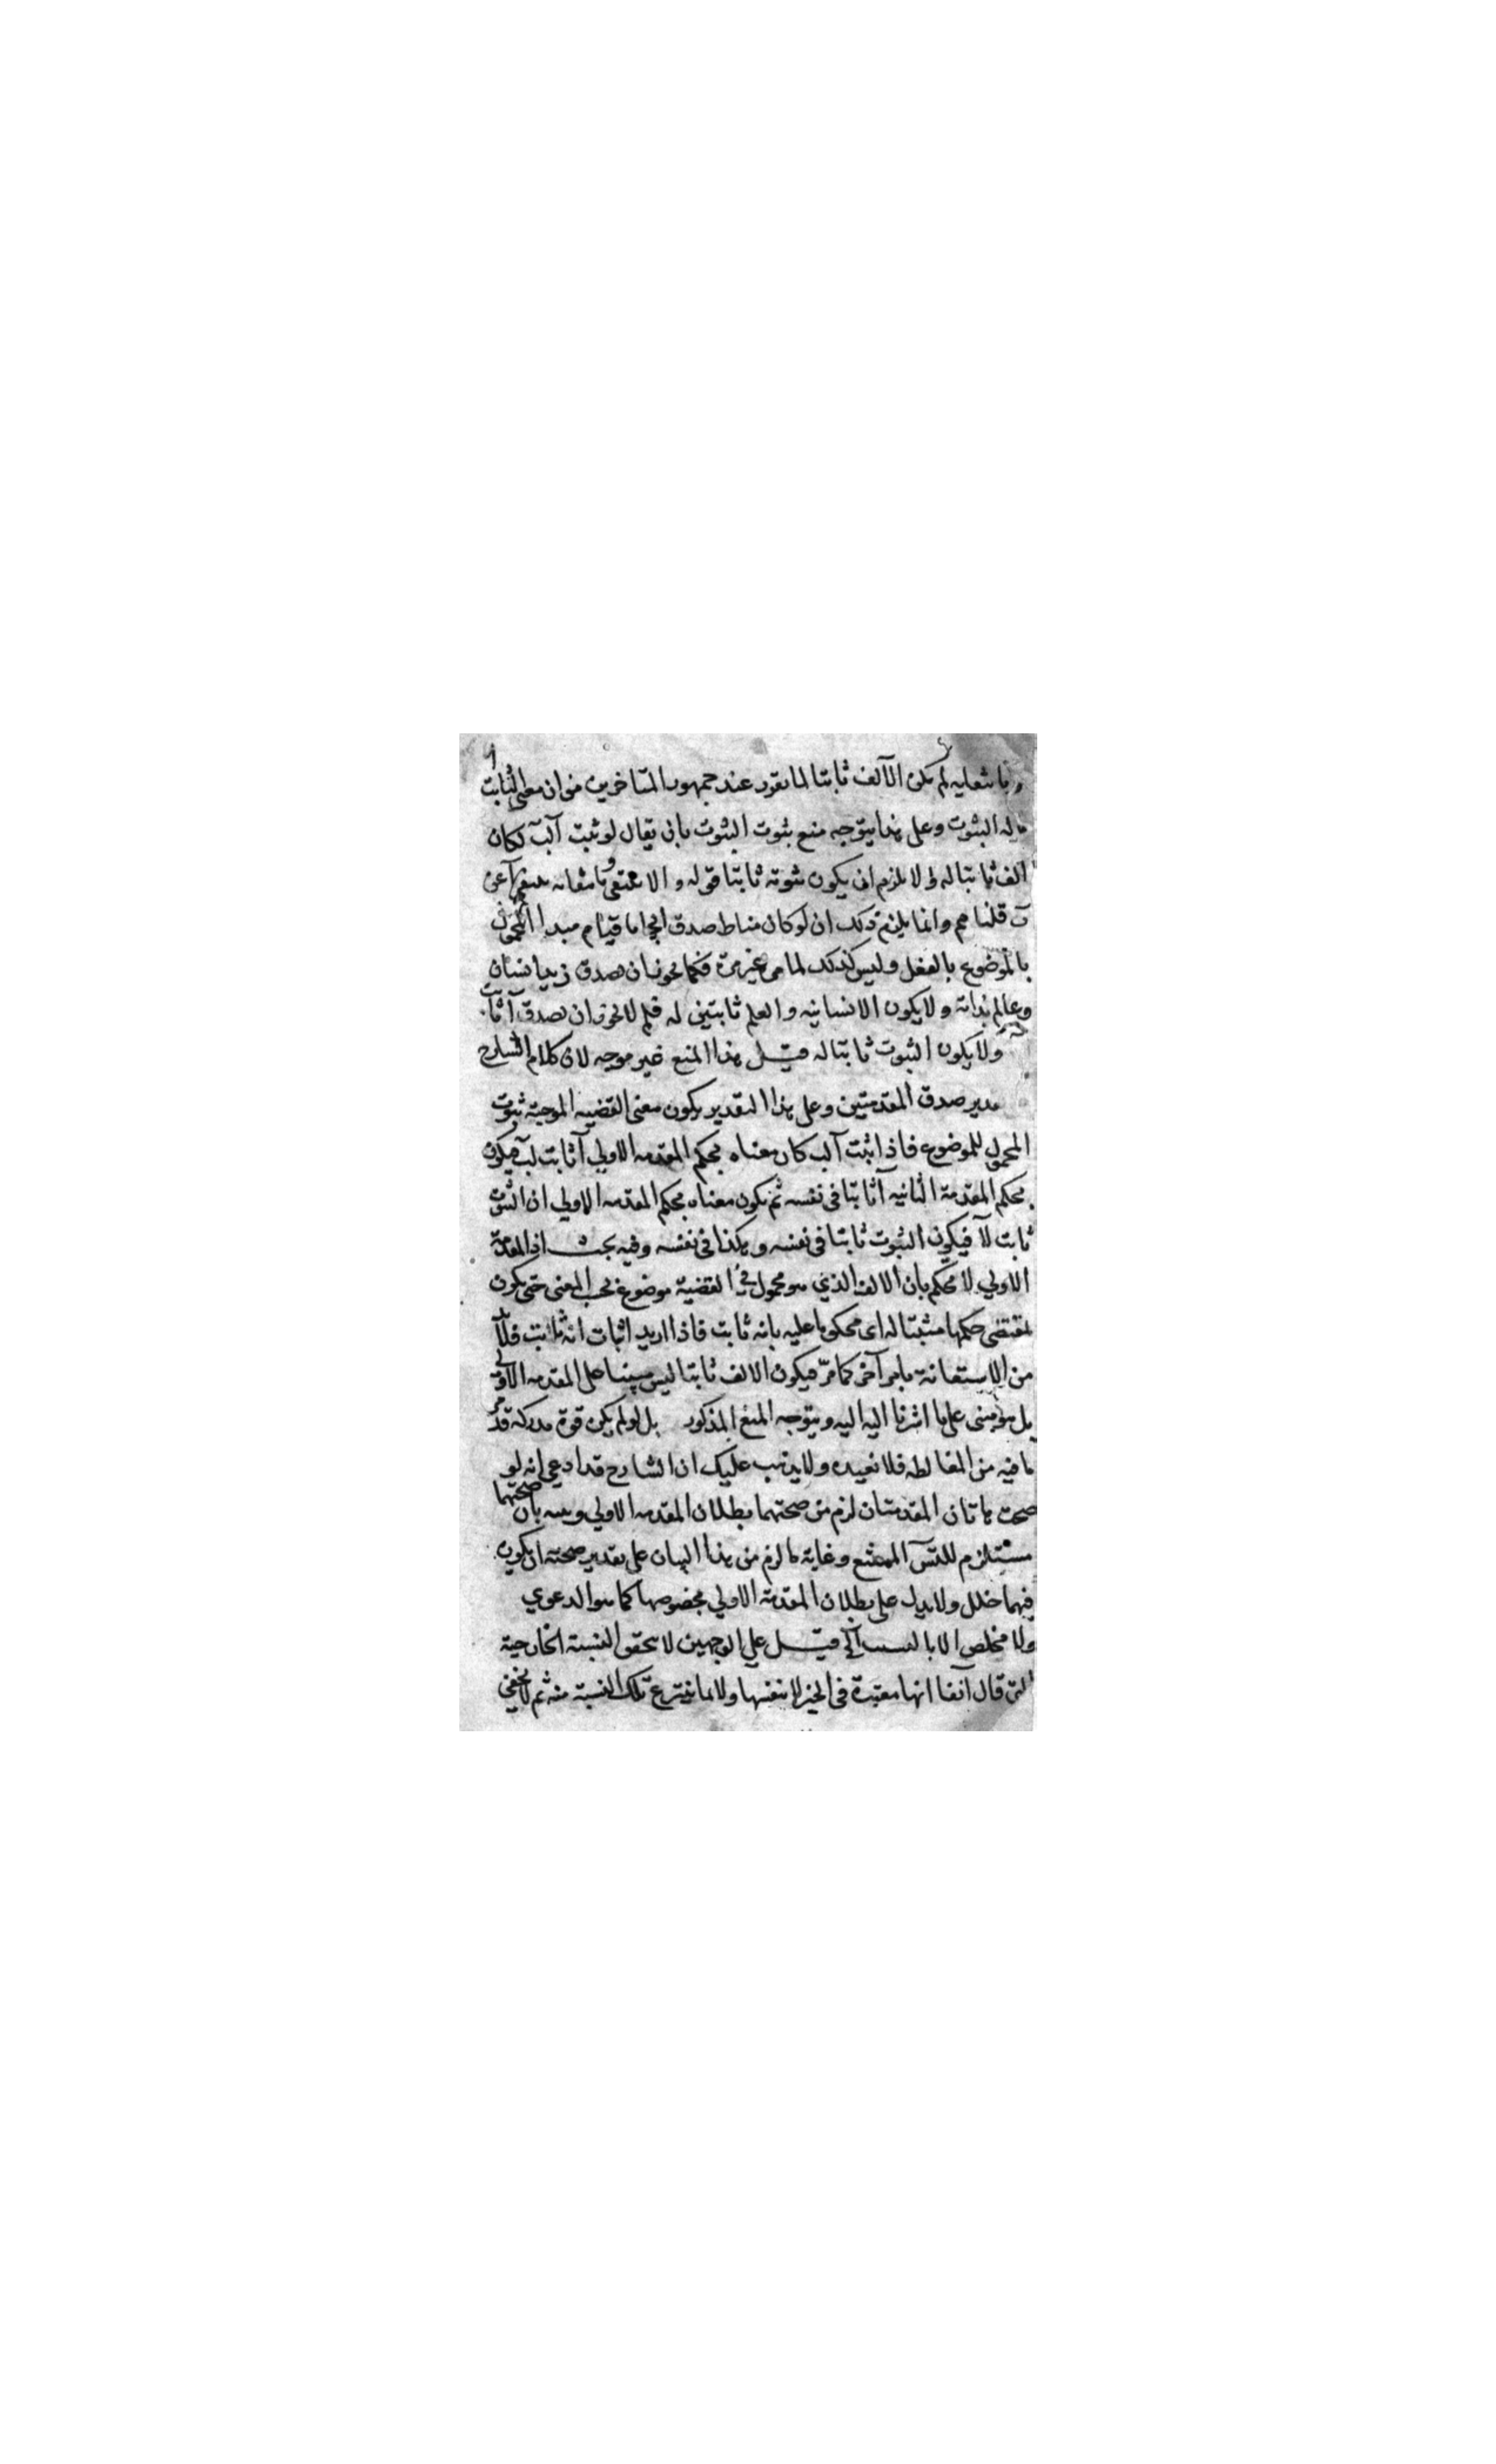 وبانتفايه لم يكن الآلف ثابتا لما تقرر عند جمهور المتاخرين من ان معنى الثابت
ما له الثبوت وعلى هذا يتوجه منع ثبوت الثبوت بان يقال لو ثبت آلب لكان
الف ثابتا له ولا يلزم ان يكون ثبوته ثابتا قوله والا لانتفى وبانتفائه ينتفى آ عن
ب قلنا مم وانما يلزم ذلك ان لو كان مناط صدق ايجابا قيام مبدا المحمول
بالموضوع بالفعل وليس كذلك لما مر غير مرة فكما يجوز ان يصدق زيد انسان
وعالم بذاته ولا يكون الانسانيه والعلم ثابتين له فلم لا يجوز ان يصدق آ ثابت
ولا يكون الثبوت ثابتا له قيل هذا المنع غير موجه لان كلام الشارح
صدق المقدمتين وعلى هذا التقدير يكون معنى القضيه الموجبة ثبوت
المحمول للموضوع فاذا ثبت آلب كان معناه بحكم المقدمه الاولي آ ثابت لب فيكون
بحكم المقدمة الثانيه آ ثابتا في نفسه ثم يكون معناه بحكم المقدمه الاولي ان الثبوت
ثابت لآ فيكون الثبوت ثابتا في نفسه وهكذا في نفسه وفيه بحث اذ المقدمة
الاولي لا تحكم بان الالف الذي هو محمول في القضية موضوع بحسب المعنى حتى يكون
بمقتضى حكمها مثبتا له اى محكوما عليه بانه ثابت فاذا اريد اثبات انه ثابت فلا بد
من الاستعانة بامر آخر كما مرّ فيكون الالف ثابتا ليس مبينا على المقدمه الاولي
بل هو مبنى على ما اشرنا اليه اليه ويتوجه المنع المذكور بل لو لم يكن قوة مدركه قد مر
ما فيه من المغالطه فلا نعيده ولا يذهب عليك ان الشارح قد ادعى انه لو
صحت هاتان المقدمتان لزم من صحتهما بطلان المقدمه الاولي وبينه بان صحتهما
مستلزم للتس الممتنع وغاية ما لزم من هذا البيان على تقدير صحته ان يكون
فيهما خلل ولا يدل على بطلان المقدمة الاولي بخصوصها كما هو الدعوي
ولا مخلص الا قيل على الوجهين لا تحقق النسبة الخارجية
التى قال آنفا انها معتبرة في الخبر لا بنفسها ولا لما ينتزع تلك النسبة منه ثم لا يخفى